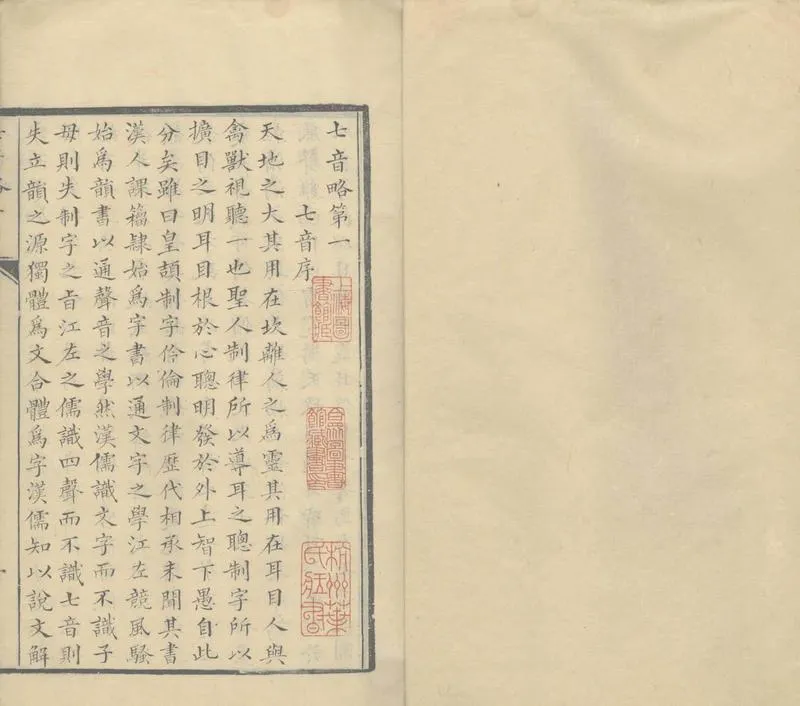 七音略第一
七音序
天地之大其用在坎離人之爲靈其用在耳目人與
禽獸視聽一也聖人制律所以導耳之聰制字所以
擴目之明耳目根於心聰明發於外上智下愚自此
分矣雖曰皇頡制字伶倫制律歷代相承未聞其書
漢人課籀隸始爲字書以通文字之學江左競風騷
始爲韻書以通聲音之學然漢儒識文字而不識子
母則失制字之旨江左之儒識四聲而不識七音則
失立韻之源獨體爲文合體爲字漢儒知以說文解
杭州葉氏藏書